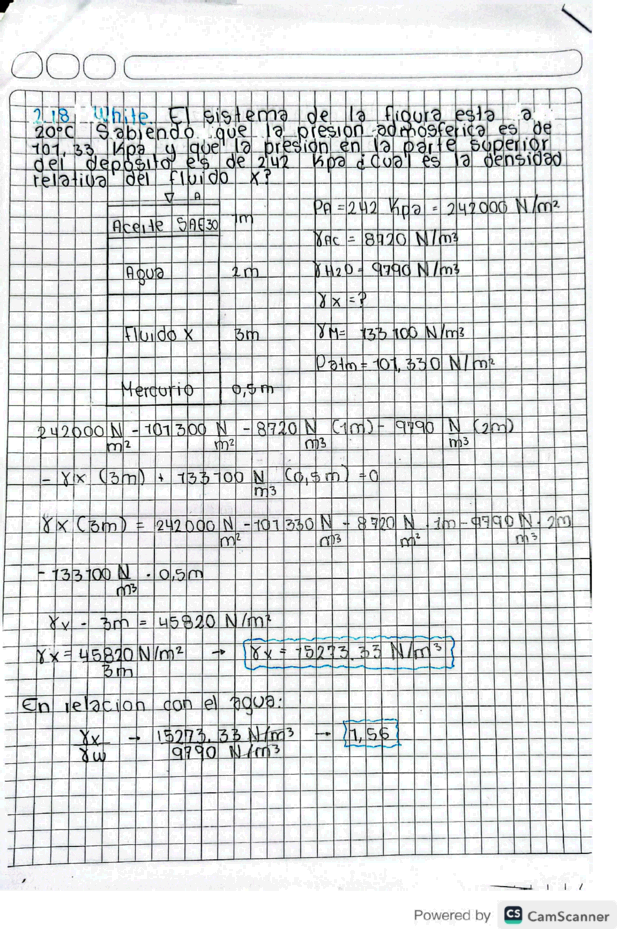 2.18 White. El sistema de la figura esta a
20°C Sabiendo que la presion admosferica es de
101,33 Kpa y que la presion en la parte superior
del deposito es de 242 Kpa ¿cual es la densidad
relativa del fluido x?
A
Aceite SAE30 1m
Agua 2m
Fluido x 3m
Mercurio 0,5m
PA = 242 Kpa = 242000 N/m²
γAC = 8720 N/m³
γH2O = 9790 N/m³
γx = ?
γM = 133 100 N/m³
Patm = 101,330 N/m²
242000 N/m² - 101300 N/m² - 8720 N/m³ (1m) - 9790 N/m³ (2m)
- γx (3m) + 133 100 N/m³ (0,5m) = 0
γx (3m) = 242000 N/m² - 101330 N/m³ - 8720 N/m² · 1m - 9790 N/m³ · 2m
- 133100 N/m³ · 0,5m
γx - 3m = 45820 N/m²
γx = 45820 N/m² / 3m → γx = 15273,33 N/m³
En relacion con el agua:
γx/γw → 15273,33 N/m³ / 9790 N/m³ → 1,56
Powered by CS CamScanner